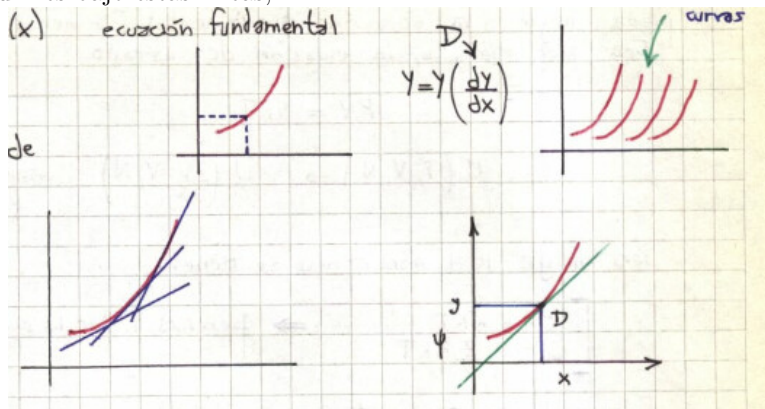 (x) ecuación fundamental
D
Y=Y(dY/dX)
curvas
de
y
D
ψ
x